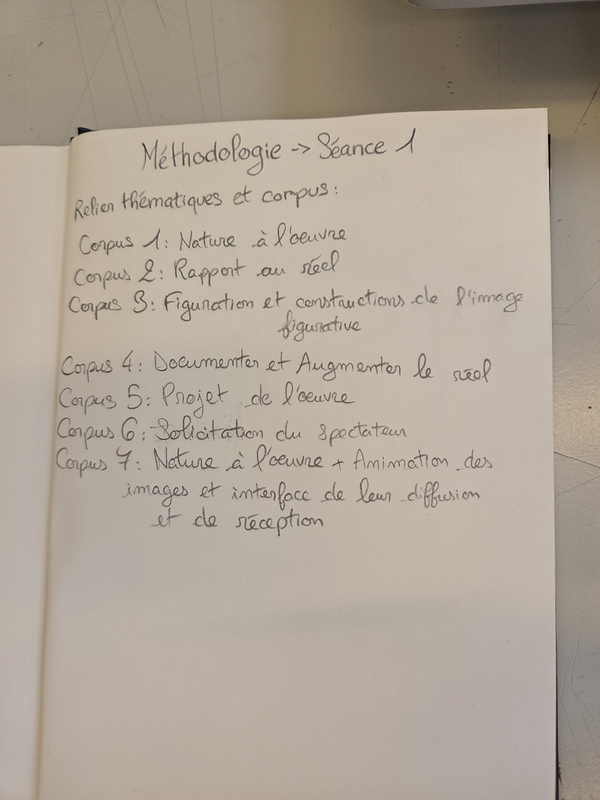 Méthodologie -> Séance 1
Relier thématiques et corpus :
Corpus 1 : Nature à l'oeuvre
Corpus 2 : Rapport au réel
Corpus 3 : Figuration et constructions de l'image
figurative
Corpus 4 : Documenter et Augmenter le réel
Corpus 5 : Projet de l'oeuvre
Corpus 6 : Solicitation du spectateur
Corpus 7 : Nature à l'oeuvre + Animation des
images et interface de leur diffusion
et de réception